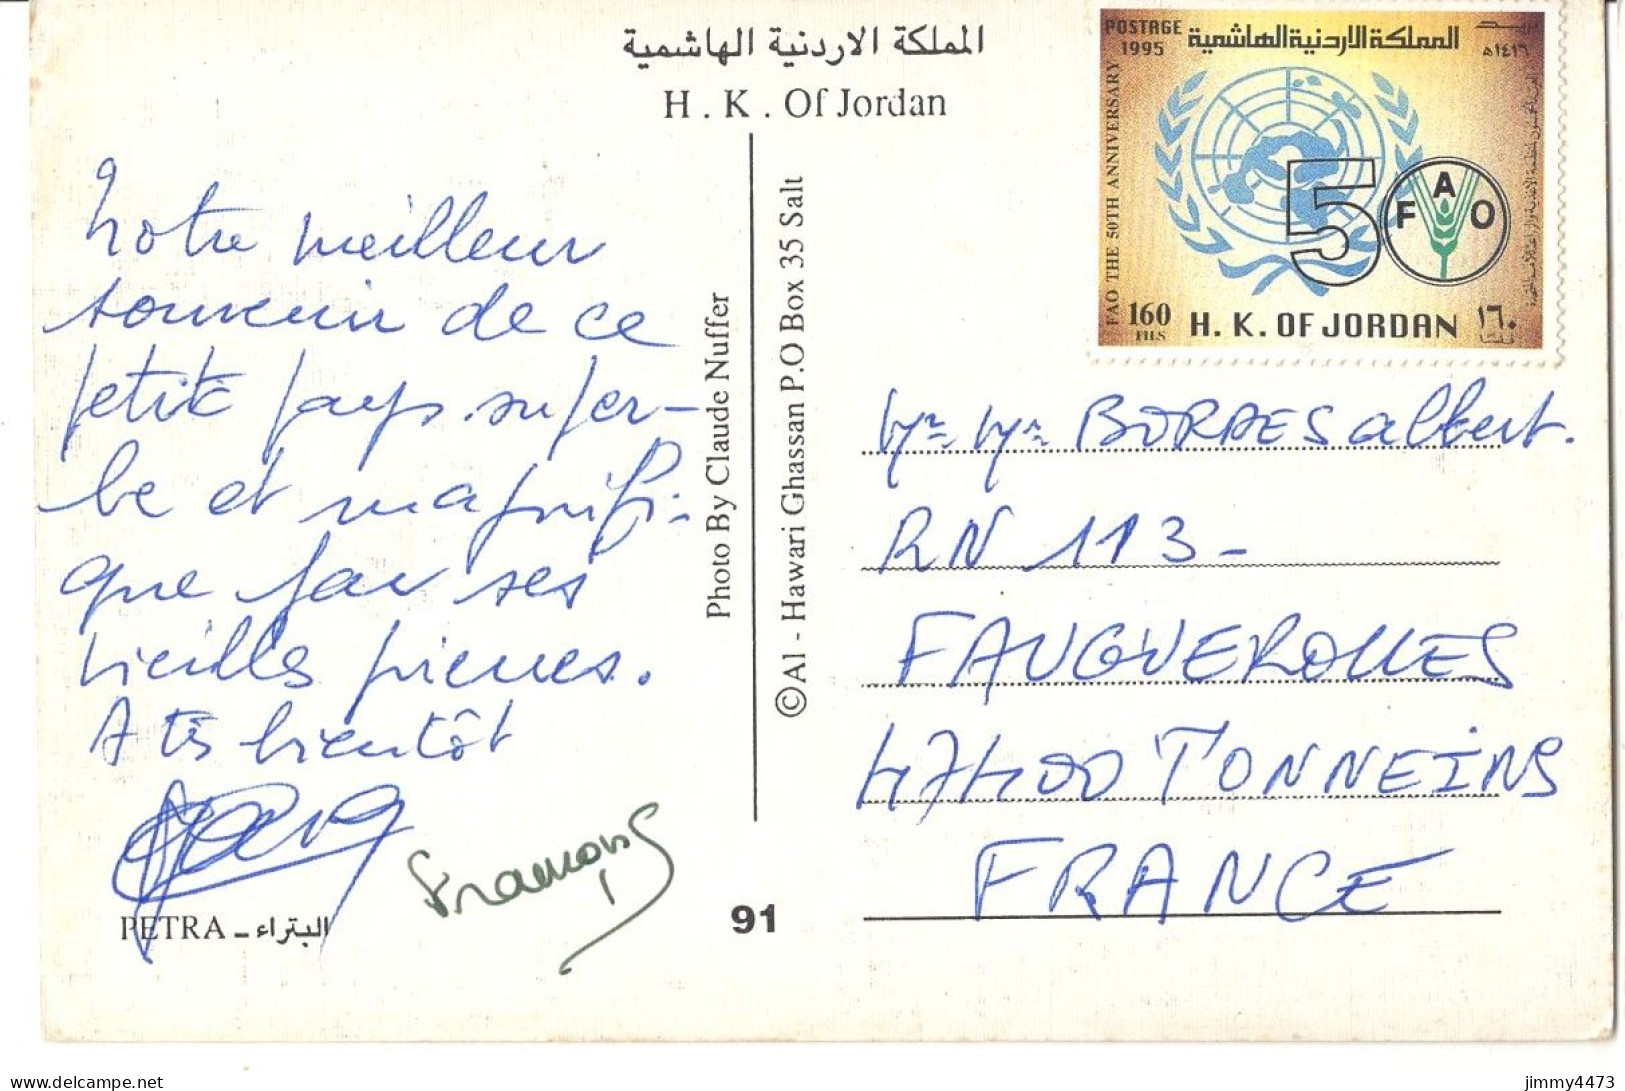 المملكة الاردنية الهاشمية
H . K . Of Jordan
POSTAGE
1995
المملكة الاردنية الهاشمية
بريد
١٤١٦هـ
FAO THE 50TH ANNIVERSARY
50
FAO
160
FILS
H. K. OF JORDAN
١٦٠
Notre meilleur
souvenir de ce
petit pays super-
be et magnifi-
que par ses
vieilles pierres.
A tès bientôt
Francois
PETRA – البتراء
Photo By Claude Nuffer
©Al - Hawari Ghassan P.O Box 35 Salt
91
BORDES albert.
RN 113 -
FAUGUEROLLES
47400 TONNEINS
FRANCE
delcampe.net
jimmy4473